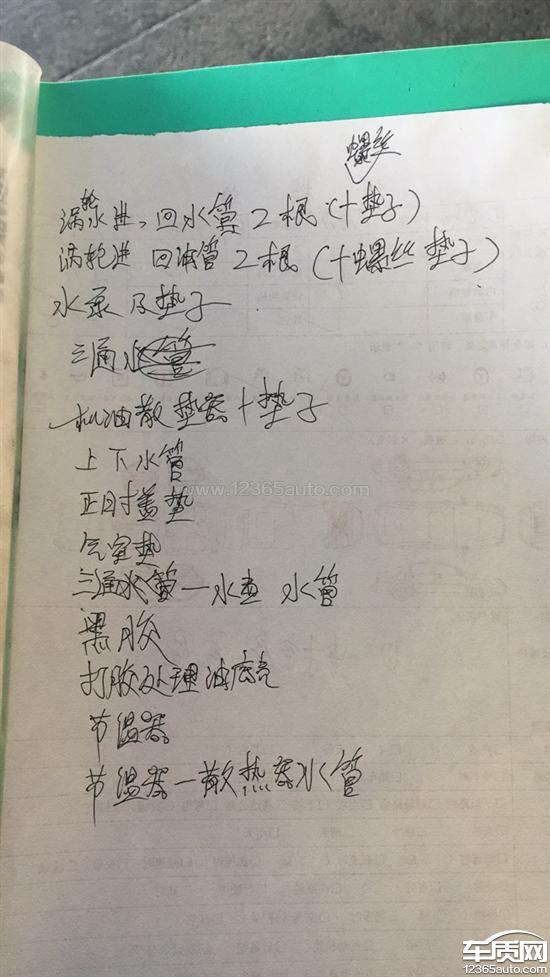 螺丝
涡轮水进、回水管2根(+垫子)
涡轮进 回油管2根(+螺丝 垫子)
水泵及垫子
三通水管
机油散垫器+垫子
上下水管
www.12365auto.com
正时盖垫
气室垫
三通水管—水壶 水管
黑胶
打胶处理油底壳
节温器
节温器—散热器水管
车质网
12365auto.com